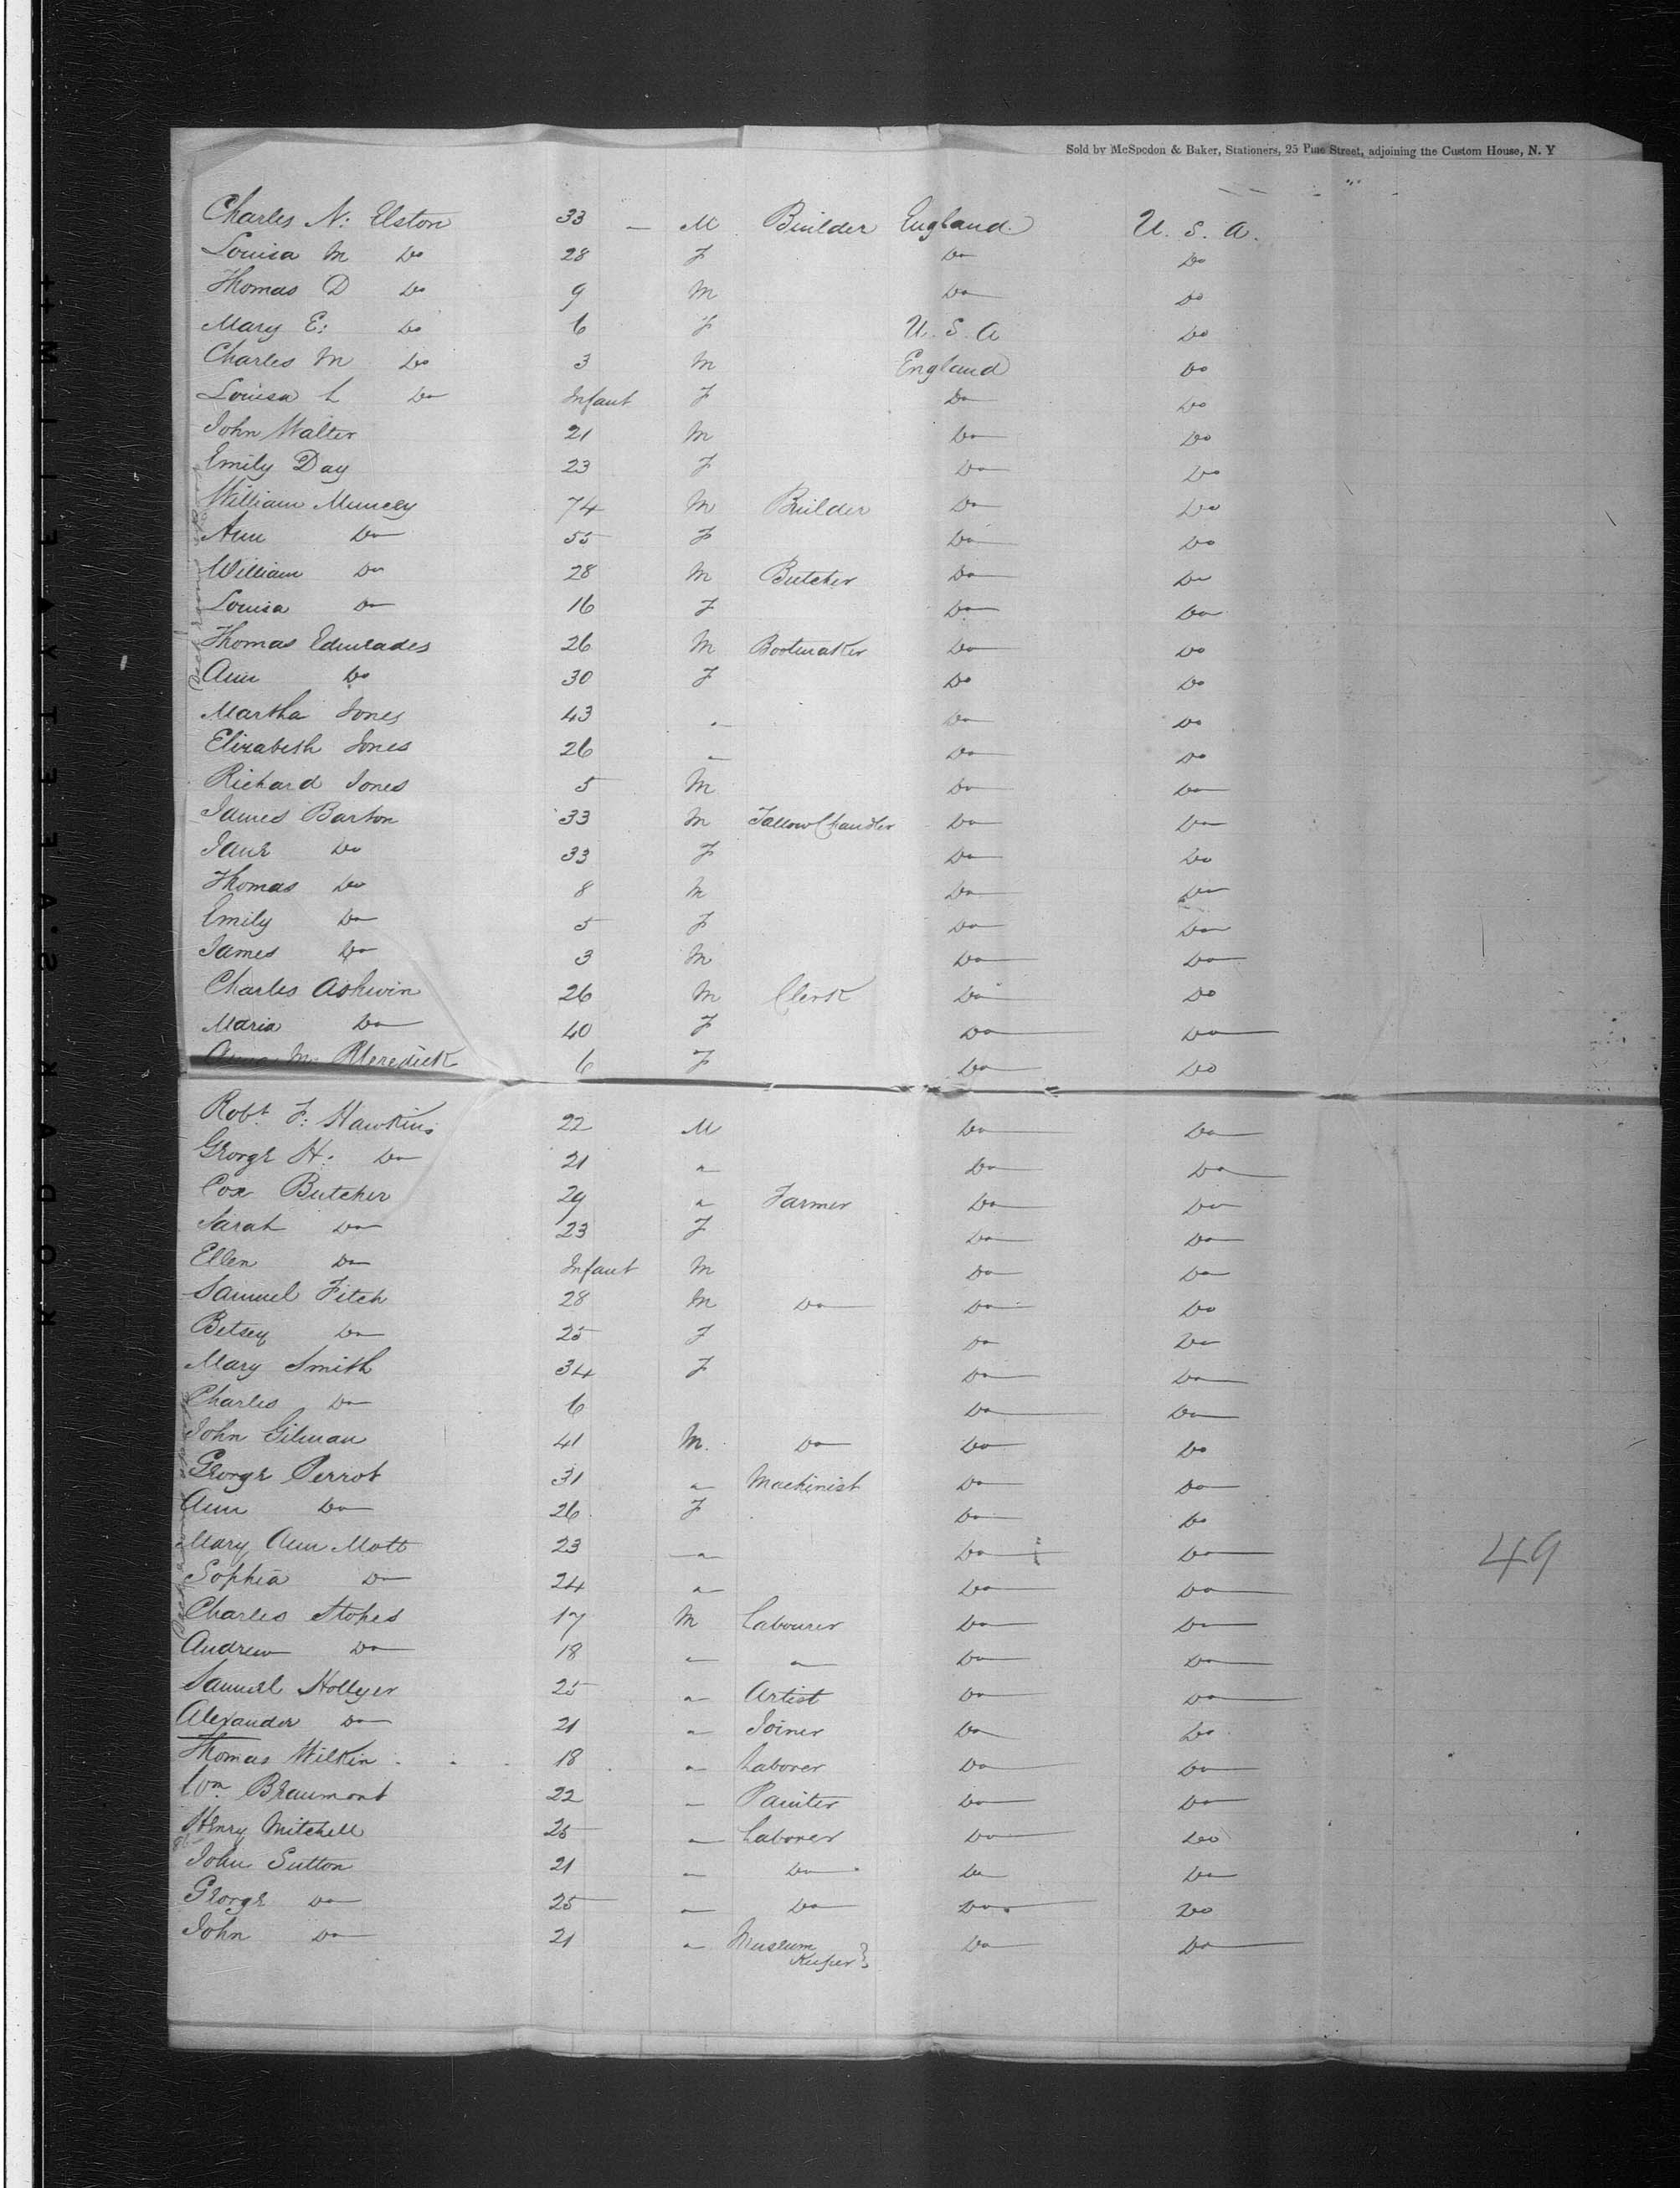 Sold by McSpedon & Baker, Stationers, 25 Pine Street, adjoining the Custom House, N. Y
Charles N: Elston 33 — M Builder England U. S. A.
Louisa M Do 28 F Do Do
Thomas D Do 9 M Do Do
Mary E: Do 6 F U. S. A Do
Charles M Do 3 M England Do
Louisa L Do Infant F Do Do
John Walter 21 M Do Do
Emily Day 23 F Do Do
William Muncey 74 M Builder Do Do
Ann Do 55 F Do Do
William Do 28 M Butcher Do Do
Louisa Do 16 F Do Do
Thomas Edmrades 26 M Bootmaker Do Do
Ann Do 30 F Do Do
Martha Jones 43 " Do Do
Elizabeth Jones 26 " Do Do
Richard Jones 5 M Do Do
James Barton 33 M Tallow Chandler Do Do
Jane Do 33 F Do Do
Thomas Do 8 M Do Do
Emily Do 5 F Do Do
James Do 3 M Do Do
Charles Ashwin 26 M Clerk Do Do
Maria Do 40 F Do Do
M. 6 F Do Do
Robt. F: Hawkins 22 M Do Do
George H: Do 21 " Do Do
Cox Butcher 29 " Farmer Do Do
Sarah Do 23 F Do Do
Ellen Do Infant M Do Do
Samuel Fitch 28 M Do Do Do
Betsey Do 25 F Do Do
Mary Smith 34 F Do Do
Charles Do 6 Do Do
John Gilman 41 M. Do Do Do
George Perrot 31 " Machinist Do Do
Ann Do 26 F Do Do
Mary Ann Mott 23 " Do Do
49
Sophia Do 24 " Do Do
Charles Stokes 17 M Labourer Do Do
Andrew Do 18 " " Do Do
Samuel Hollyer 25 " Artist Do Do
Alexander Do 21 " Joiner Do Do
Thomas Wilkin 18 " Laborer Do Do
Wm. Beaumont 22 " Painter Do Do
Henry Mitchell 25 " Laborer Do Do
John Sutton 21 " Do Do Do
George Do 25 " Do Do Do
John Do 21 " Museum Keeper } Do Do
KODAK·SAFETY▲FILM